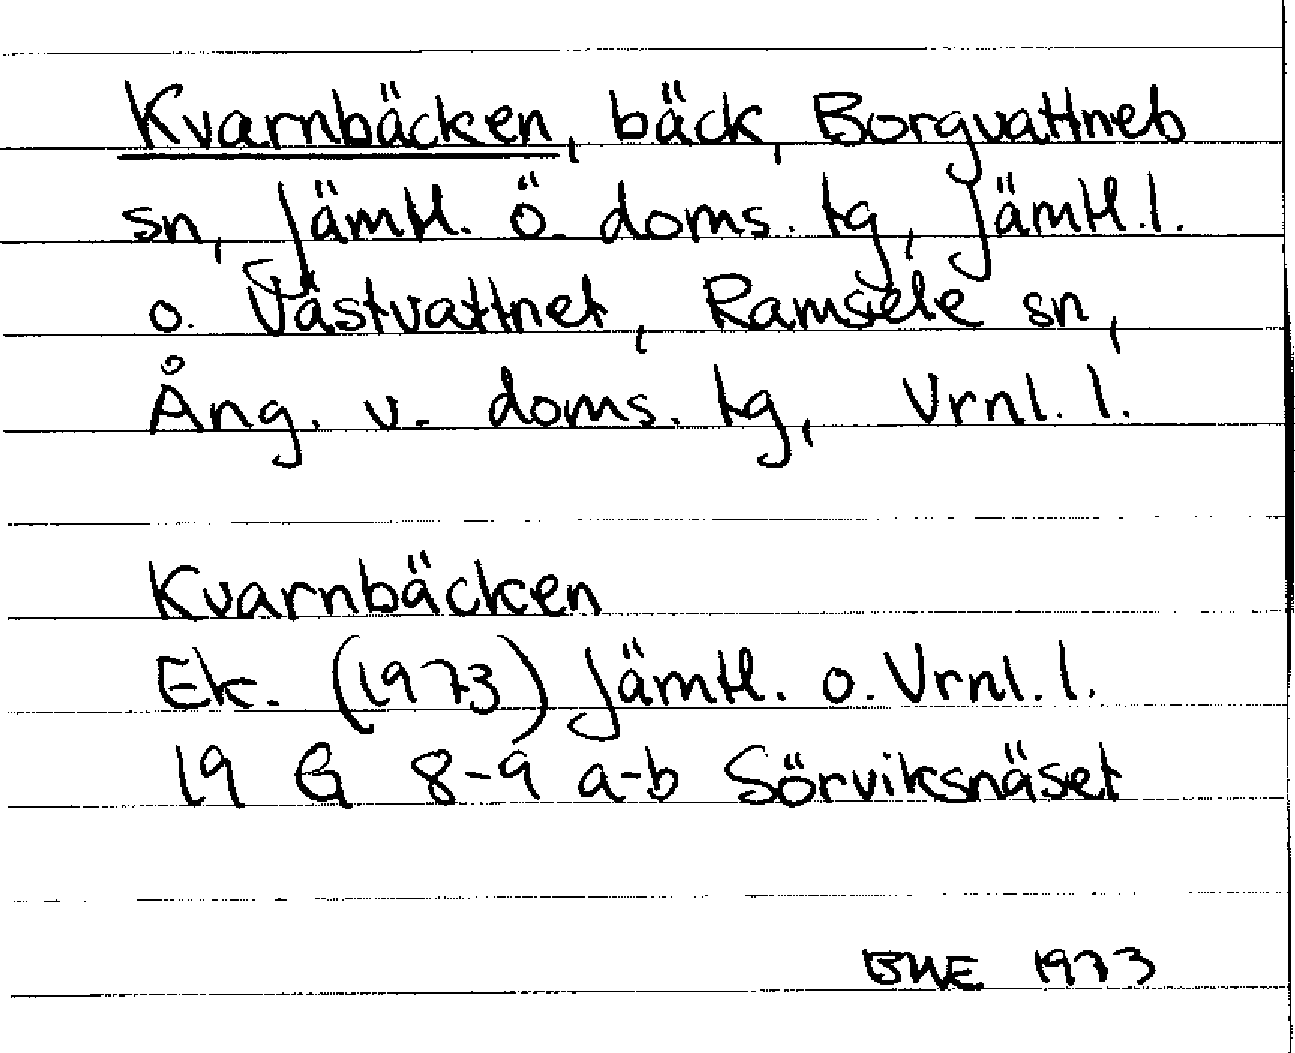 Kvarnbäcken, bäck, Borgvattnets
sn, Jämtl. ö. doms. tg, Jämtl. l.
o. Västvattnet, Ramsele sn,
Ång. v. doms. tg, Vrnl. l.
Kvarnbäcken
Ek. (1973) Jämtl. o. Vrnl. l.
19 G 8-9 a-b Sörviksnäset
BME 1973